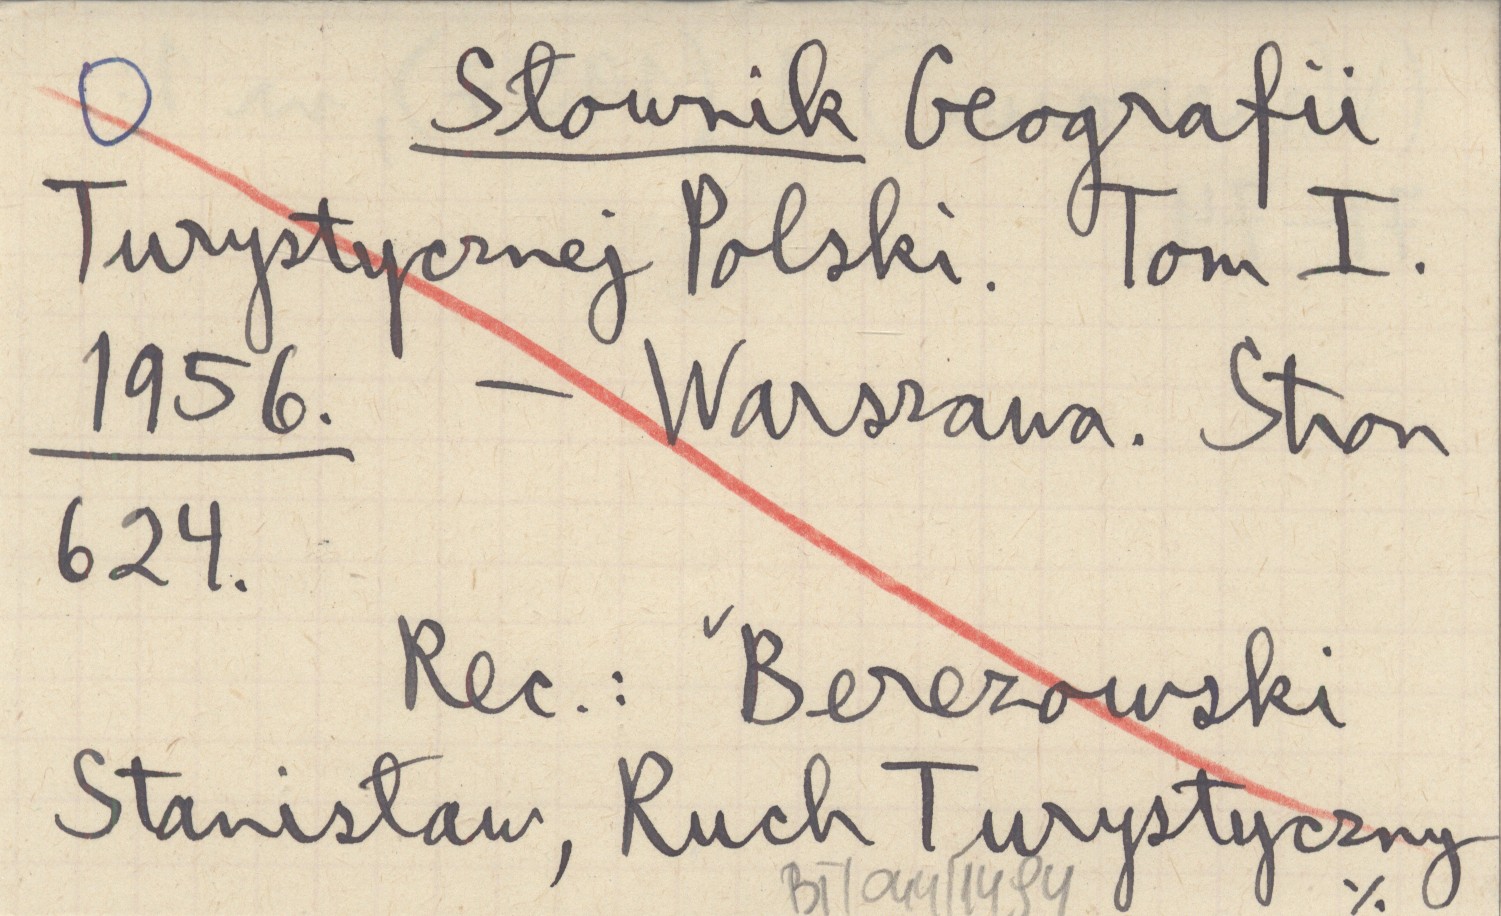 Słownik Geografii
Turystycznej Polski. Tom I.
1956. — Warszawa. Stron
624.
Rec.: Berezowski
Stanisław, Ruch Turystyczny
./.
BT/044/1494